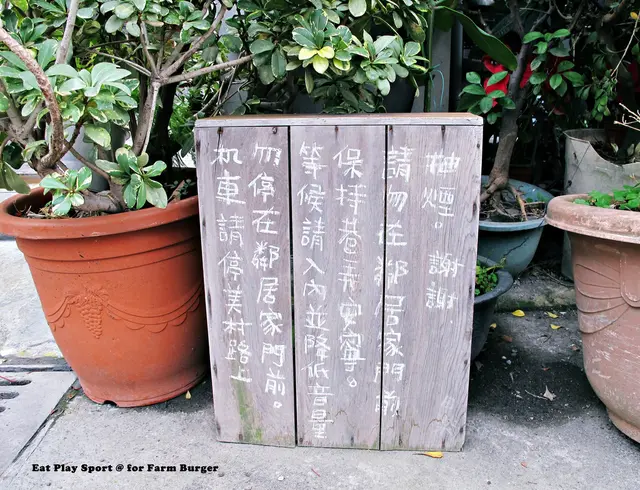 机車請停美村路上
勿停在鄰居家門前。
等候請入內並降低音量
保持巷弄安寧。
請勿在鄰居家門前
抽煙。謝謝
Eat Play Sport @ for Farm Burger